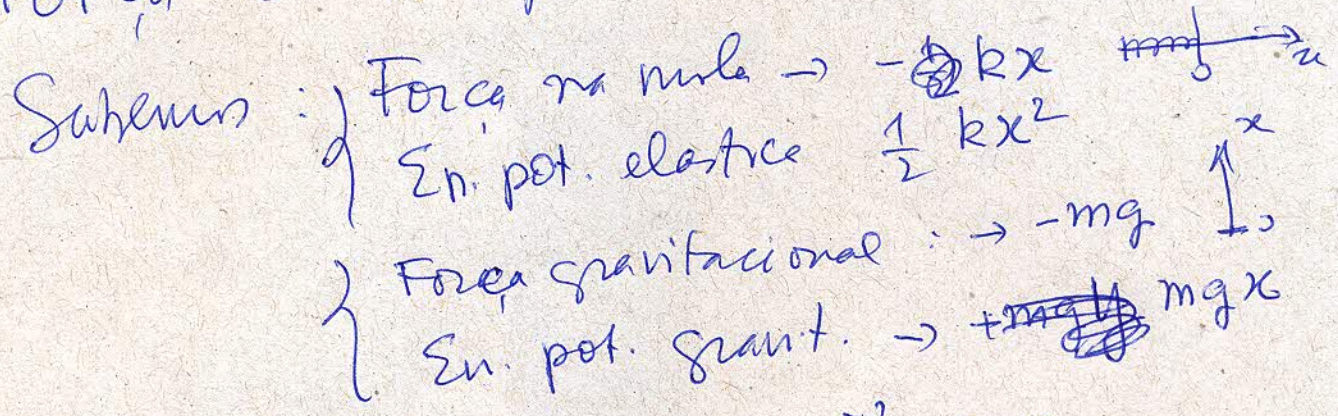 Sabemos : { Força na mola → - kx
En. pot. elastica 1/2 kx²
{ Força gravitacional : → -mg
En. pot. gravit. → mgx
x
0
x
0